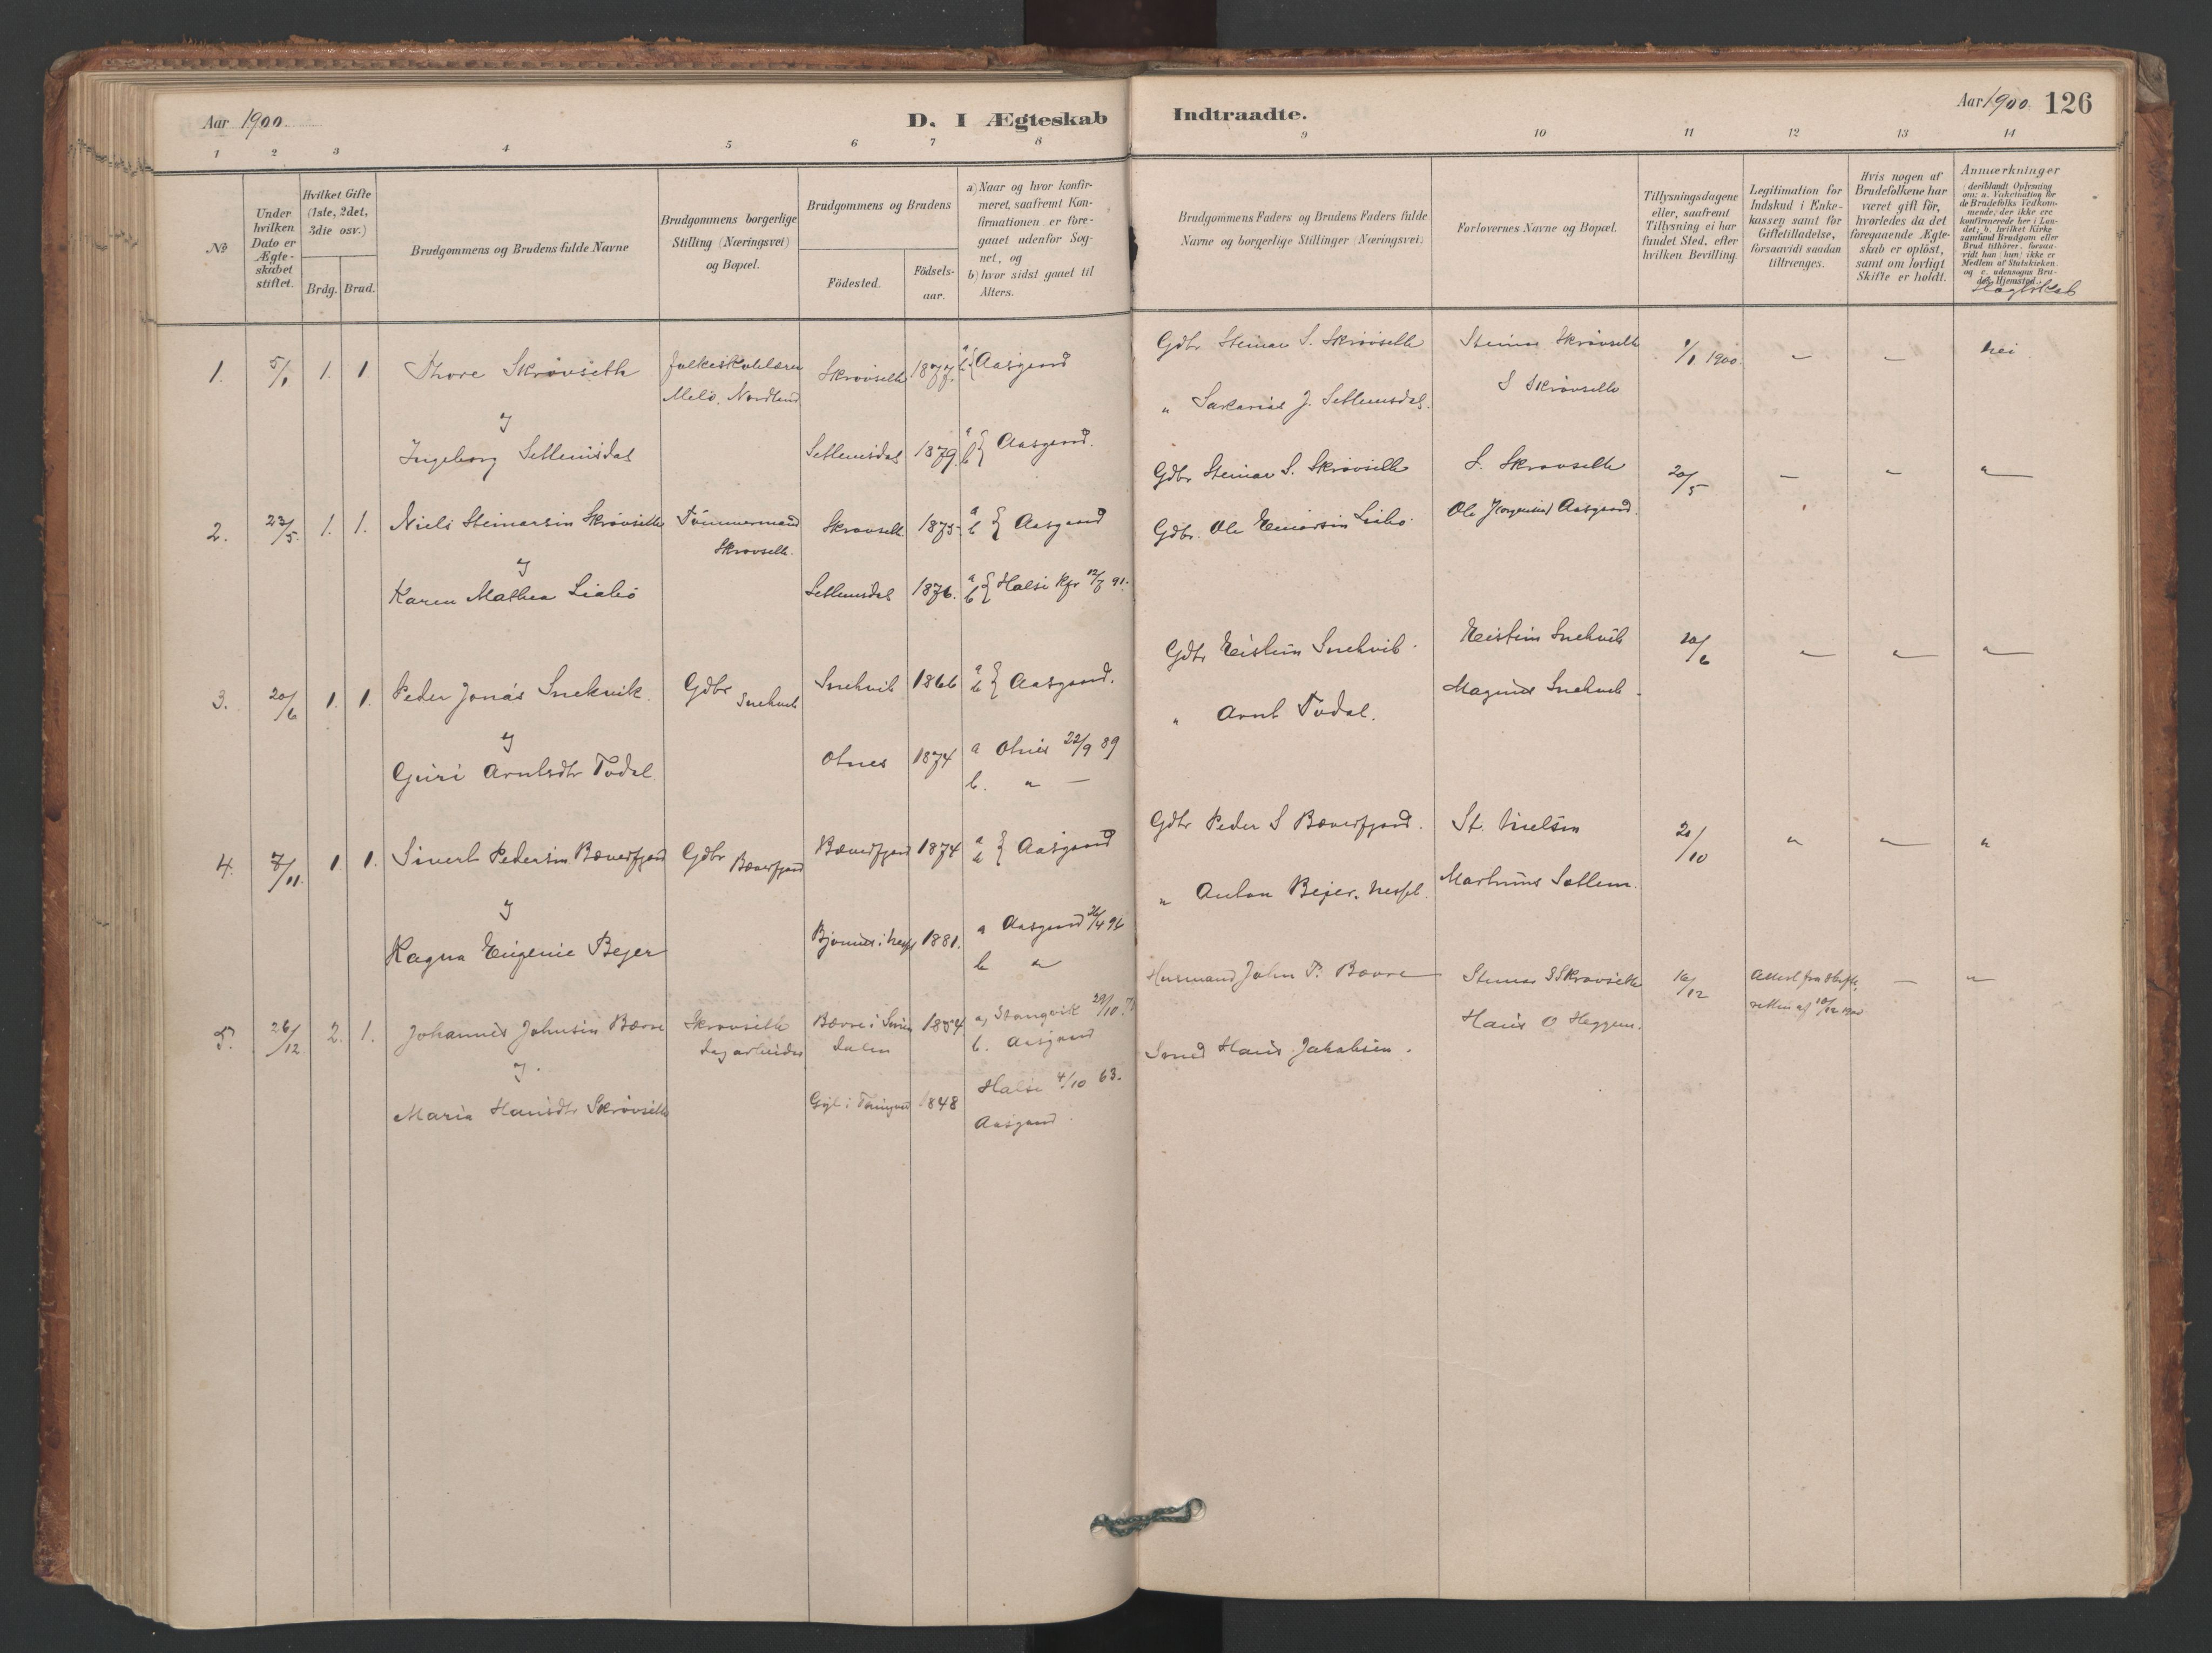 Aar 1900.
D. I Ægteskab
Indtraadte.
Aar 1900. 126
1 2 3 4 5 6 7 8 9 10 11 12 13 14
No
Under hvilken Dato er Ægteskabet stiftet.
Hvilket Gifte (1ste, 2det, 3die osv.)
Brdg. Brud.
Brudgommens og Brudens fulde Navne
Brudgommens borgerlige Stilling (Næringsvei) og Bopæl.
Brudgommens og Brudens
Födested.
Födsels-aar.
a) Naar og hvor konfir-
meret, saafremt Kon-
firmationen er fore-
gaaet udenfor Sog-
net, og
b) hvor sidst gaaet til
Alters.
Brudgommens Faders og Brudens Faders fulde
Navne og borgerlige Stillinger (Næringsvei)
Forlovernes Navne og Bopæl.
Tillysningsdagene
eller, saafremt
Tillysning ei har
fundet Sted, efter
hvilken Bevilling.
Legitimation for
Indskud i Enke-
kassen samt for
Giftetilladelse,
forsaavidt saadan
tiltrænges.
Hvis nogen af
Brudefolkene har
været gift för,
hvorledes da det
foregaaende Ægte-
skab er oplöst,
samt om lovligt
Skifte er holdt.
Anmærkninger
(deriblandt Oplysning
om: a. Vakcination for
de Brudefolks Vedkom-
mende, der ikke ere
konfirmerede her i Lan-
det; b. hvilket Kirke-
samfund Brudgom eller
Brud tilhörer, forsaa-
vidt han (hun) ikke er
Medlem af Statskirken
og c. udensogns Bru-
des Hjemsted.)
Slægtskab
1. 5/1 1. 1 Thore Skrøvseth Folkeskolelærer Skrøvseth 1877. a b { Aasgaard
Melö, Nordland
Gdbr Steinar S. Skrøvseth Steinar Skrøvseth 1/1 1900. — — nei
" Sakarias J. Settemsdal. S Skrøvseth
y
Ingeborg Settemsdal Settemsdal 1879 a b { Aasgaard.
2. 23/5. 1. 1. Niels Steinarsen Skrøvseth Tömmermand Skrøvseth 1875. a b { Aasgaard
Skrøvseth.
Gdbr Steinar S. Skrøvseth S. Skrøvseth 20/5 — " "
Gdbr. Ole Einarsen Liabö. Ole Jörgensen Aasgaard.
y
Karen Mathea Liabö Settemsdal 1876. a b { Halse Kfr 12/7 91.
3. 20/6 1. 1. Peder Jonas Snekvik. Gdbr Snekvik Snekvik 1866 a b { Aasgaard.
Gdbr Eistein Snekvik. Eistein Snekvik 10/6 — — "
" Arnt Todal. Magnus Snekvik.
y
Guri Arntsdtr Todal Otnes 1874 a Otnes 22/9 89
b. " —
4. 7/11. 1. 1. Sivert Pedersen Bæverfjord Gdbr Bæverfjord Bæverfjord 1874 a b { Aasgaard
Gdbr Peder S Bæverfjord. St. Nielsen 21/10 " — "
" Anton Bejer, Nesset. Martinus Sættem.
y
Ragna Eugenie Bejer 1881. a Aasgaard 26/4 96
b "
5. 26/12 2. 1. Johannes Johnsen Bævre Skrøvseth Bævre i Surendalen 1854 a, Stangvik 29/10
dagarbeider b. Aasgaard
Husmand John P. Bævre Steinar S Skrøvseth 16/12 Attest fra Skifte- — "
retten af 10/12 1900
Hans O Heggem.
Hans Jakobsen.
y.
Maria Hansdtr Skrøvseth 1848 Halse 4/10 63.
Aasgaard.